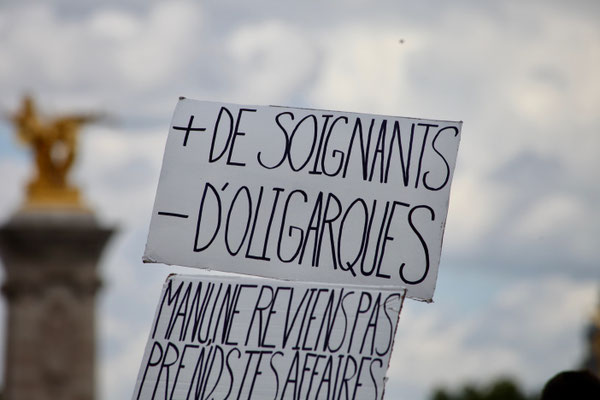 + DE SOIGNANTS
- D'OLIGARQUES
MANU, NE REVIENS PAS
PRENDS TES AFFAIRES